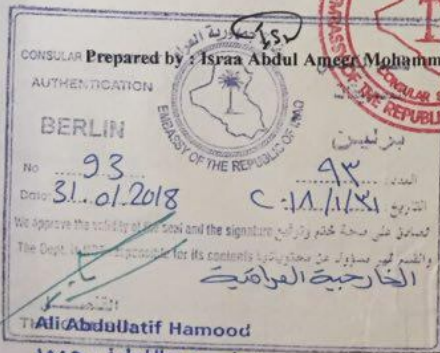 CONSULAR
Prepared by : Israa Abdul Ameer Mohamm
AUTHENTICATION
BERLIN
برلين
EMBASSY OF THE REPUBLIC OF IRAQ
CONSULAR S
No 93
العدد: ٩٣
Date: 31.01.2018
التاريخ ٢٠١٨/١/٣١
We approve the validity of the seal and the signature
نصادق على صحة ختم وتوقيع
The Dept. is not responsible for its contents
والقسم غير مسؤول عن محتوياتها
الخارجية العراقية
Ali Abdullatif Hamood